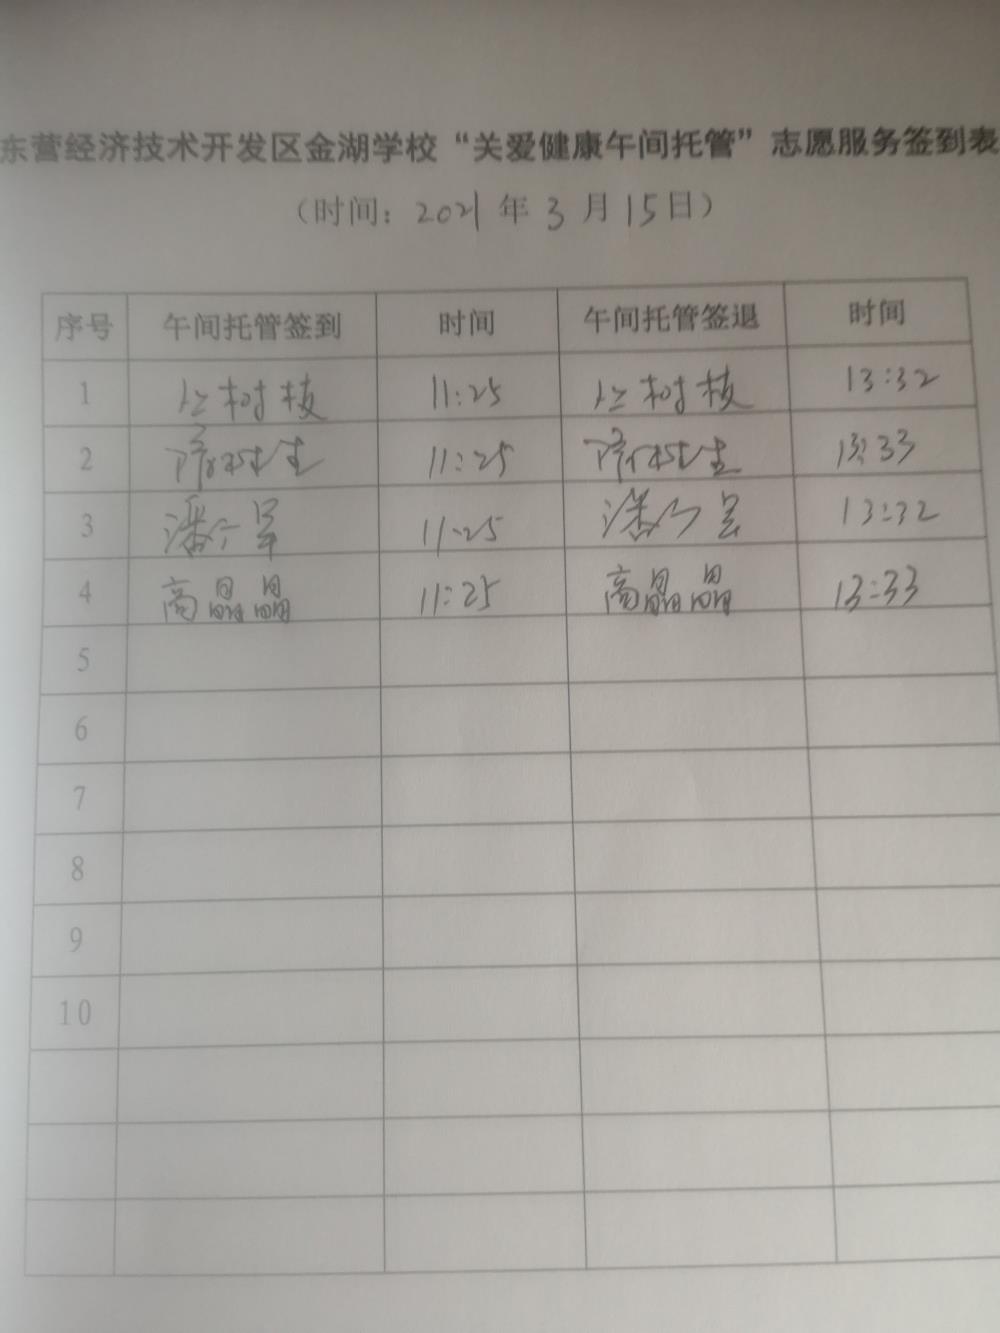 东营经济技术开发区金湖学校“关爱健康午间托管”志愿服务签到表
（时间：2021年3月15日）
序号 午间托管签到 时间 午间托管签退 时间
1 树枝 11:25 树枝 13:32
2 11:25 13:33
3 潘 11:25 潘 13:32
4 高晶晶 11:25 高晶晶 13:33
5
6
7
8
9
10